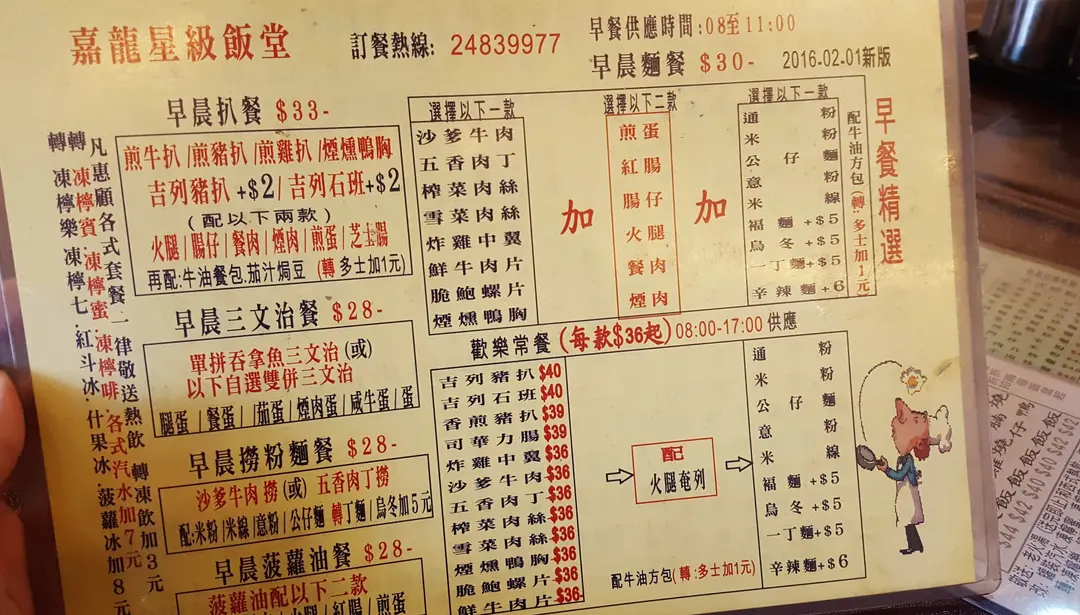 嘉龍星級飯堂
訂餐熱線: 24839977
早餐供應時間:08至11:00
早晨麵餐 $30-
2016-02-01新版
早餐精選
凡惠顧各式套餐一律敬送熱飲 轉凍飲加3元
轉凍檸賓.凍檸蜜.凍檸啡.各式汽水加7元
轉凍檸樂.凍檸七.紅斗冰.什果冰.菠蘿冰加8元
早晨扒餐 $33-
煎牛扒/煎豬扒/煎雞扒/煙燻鴨胸
吉列豬扒+$2/吉列石班+$2
(配以下兩款)
火腿/腸仔/餐肉/煙肉/煎蛋/芝士腸
再配:牛油餐包.茄汁焗豆 (轉多士加1元)
早晨三文治餐 $28-
單拼吞拿魚三文治(或)
以下自選雙併三文治
腿蛋/餐蛋/茄蛋/煙肉蛋/咸牛蛋/蛋
早晨撈粉麵餐 $28-
沙爹牛肉撈(或)五香肉丁撈
配:米粉/米線/意粉/公仔麵 轉丁麵/烏冬加5元
早晨菠蘿油餐 $28-
菠蘿油配以下二款
火腿/紅腸/煎蛋
選擇以下一款
沙爹牛肉
五香肉丁
榨菜肉絲
雪菜肉絲
炸雞中翼
鮮牛肉片
脆鮑螺片
煙燻鴨胸
加
選擇以下二款
煎蛋
紅腸
腸仔
火腿
餐肉
煙肉
加
選擇以下一款
通粉
米粉
公仔麵
意粉
米線
福麵+$5
烏冬+$5
一丁麵+$5
辛辣麵+$6
配牛油方包(轉:多士加1元)
歡樂常餐(每款$36起)08:00-17:00供應
吉列豬扒$40
吉列石班$40
香煎豬扒$39
司華力腸$39
炸雞中翼$36
沙爹牛肉$36
五香肉丁$36
榨菜肉絲$36
雪菜肉絲$36
煙燻鴨胸$36
脆鮑螺片$36
鮮牛肉片$36
配
火腿奄列
配牛油方包(轉:多士加1元)
通粉
米粉
公仔麵
意粉
米線
福麵+$5
烏冬+$5
一丁麵+$5
辛辣麵+$6